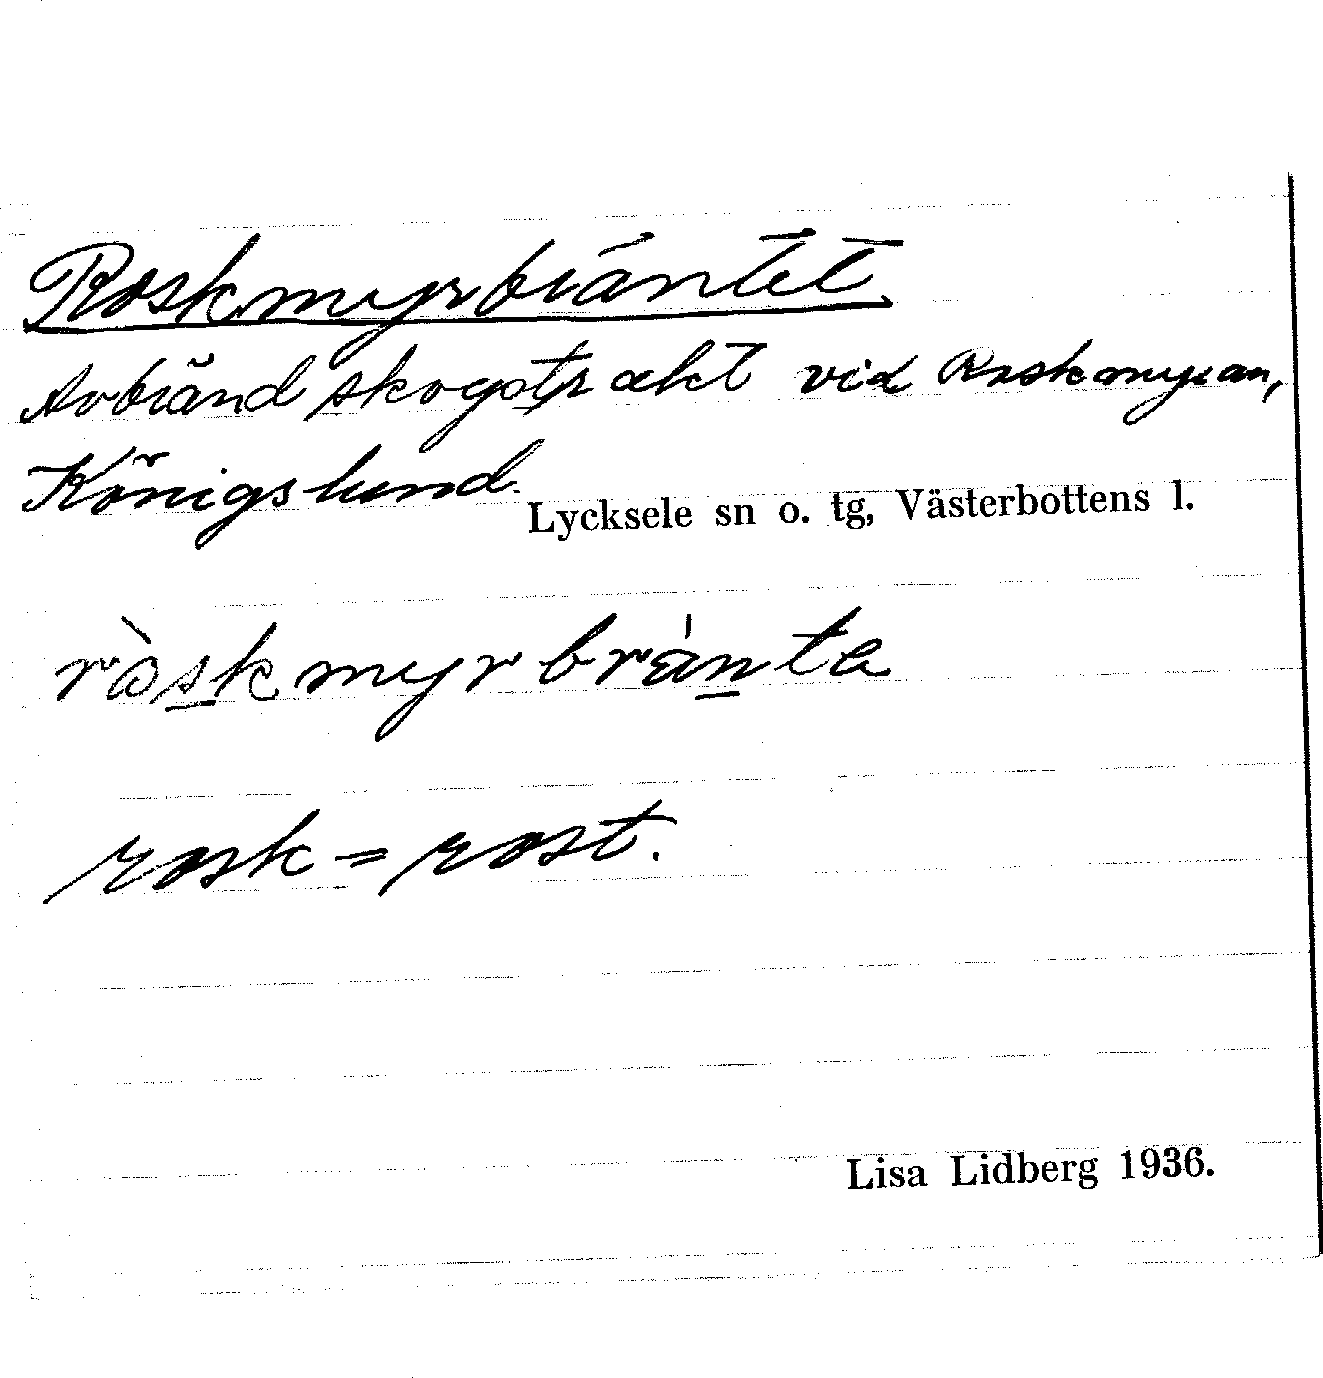 Roskmyrbräntet
Avbränd skogstrakt vid Roskmyran,
Königslund.
Lycksele sn o. tg, Västerbottens l.
ròskmyrbránta
rosk = rost.
Lisa Lidberg 1936.